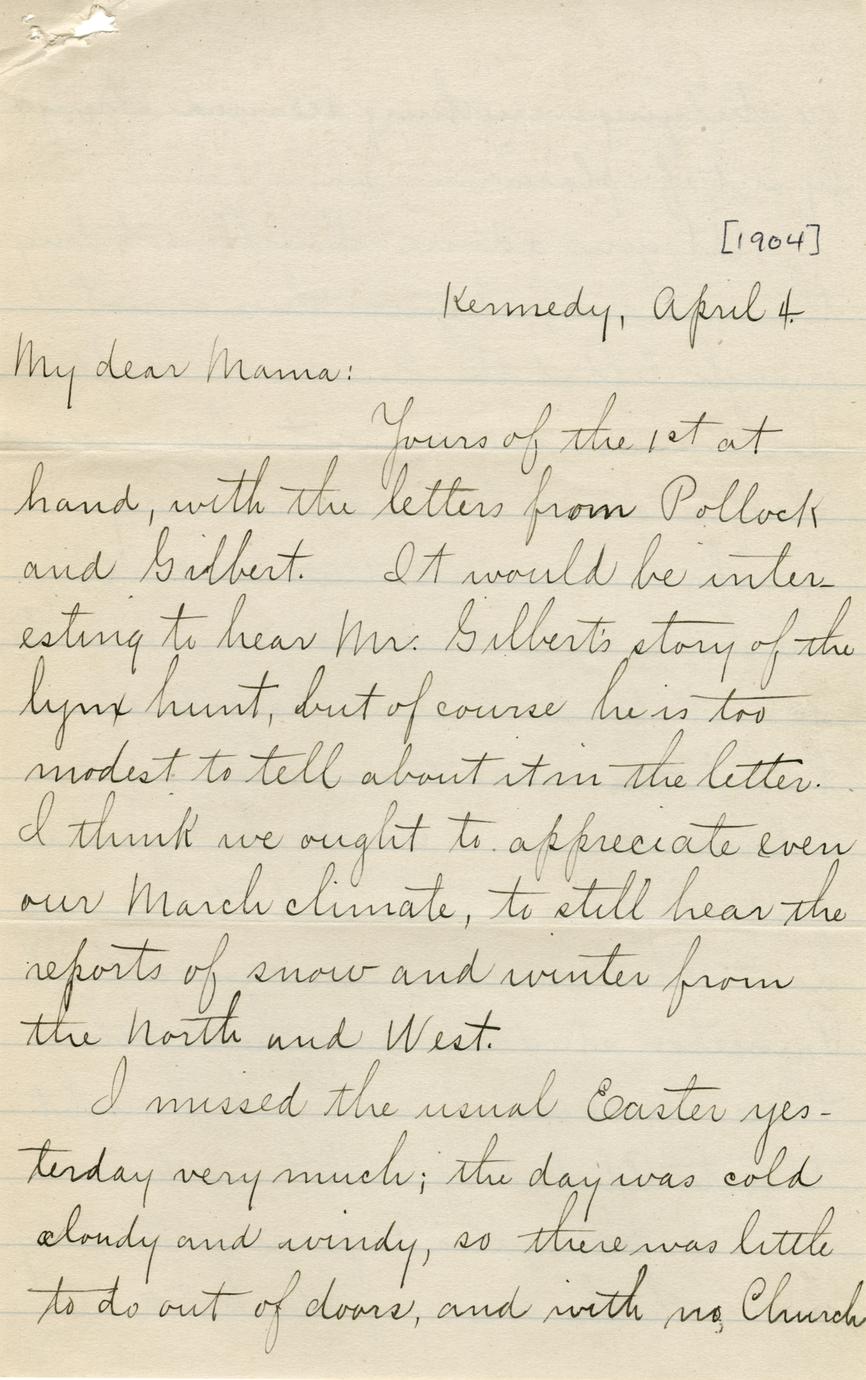 [1904]
Kennedy, April 4.
My dear Mama:
Yours of the 1st at
hand, with the letters from Pollock
and Gilbert. It would be inter-
esting to hear Mr. Gilbert's story of the
lynx hunt, but of course he is too
modest to tell about it in the letter.
I think we ought to appreciate even
our March climate, to still hear the
reports of snow and winter from
the North and West.
I missed the usual Easter yes-
terday very much; the day was cold
cloudy and windy, so there was little
to do out of doors, and with no Church